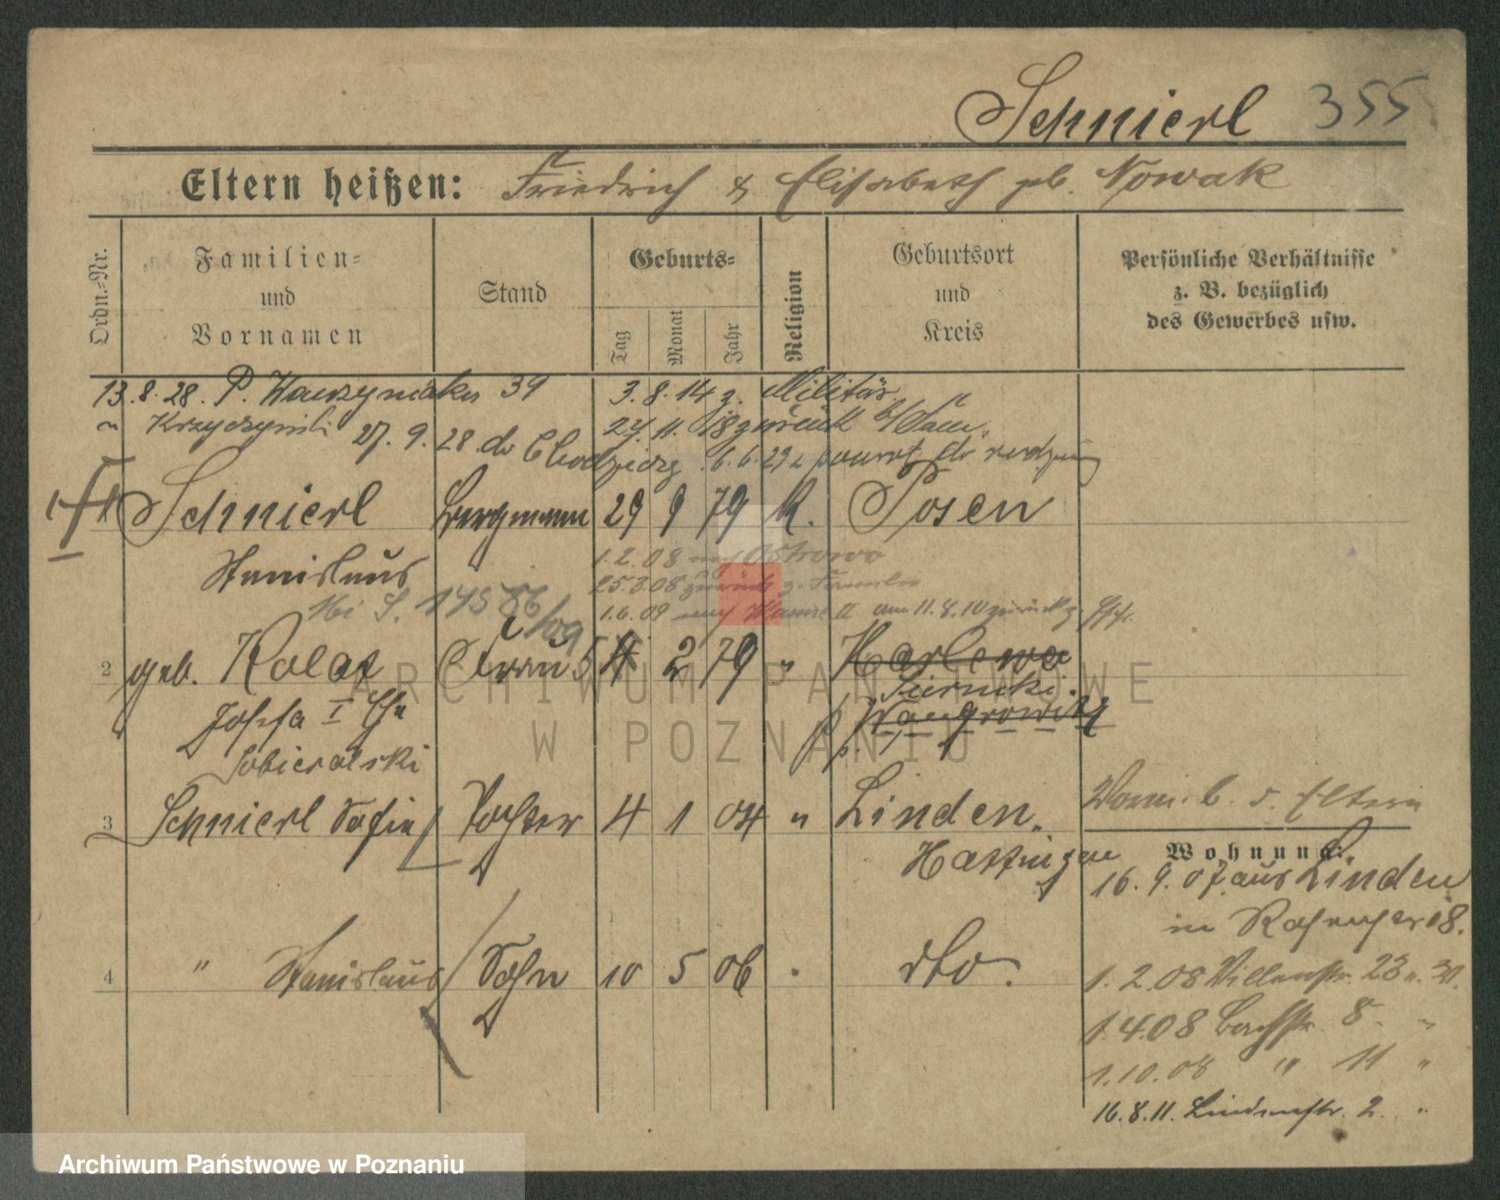 Schnierl 355
Eltern heißen: Friedrich & Elisabeth geb. Nowak
Ordn.-Nr.
Familien-
und
Vornamen
Stand
Geburts-
Tag
Monat
Jahr
Religion
Geburtsort
und
Kreis
Persönliche Verhältnisse
z. B. bezüglich
des Gewerbes usw.
13.8.28. P. Wawrzyniaka 39
3.8.14 z. Militär
27.9.28 do
27.11.18 zurück
6.6.29 z powrot do
1 Schnierl Bergmann 29 9 79 k. Posen
Stanislaus
1.2.08 nach Ostrowo
25.3.08 zurück z. Familie
1.6.09 nach Wanne II am 11.8.10 zurück z.
2 geb. Kolat Frau 2 79 " Karlewo
Josefa I Ehe
Sobieralski
Siernicki
Wangrowitz
3 Schnierl Sofie Tochter 4 1 04 " Linden.
Hattingen
Wohn. b. d. Eltern
Wohnung:
16.9.07 aus Linden
in 18.
4 " Stanislaus Sohn 10 5 06 " dto.
1.2.08 23
1.4.08 Bachstr. 8 "
1.10.08 " 11 "
16.8.11. Lindenstr. 2 "
ARCHIWUM PAŃSTWOWE
W POZNANIU
Archiwum Państwowe w Poznaniu